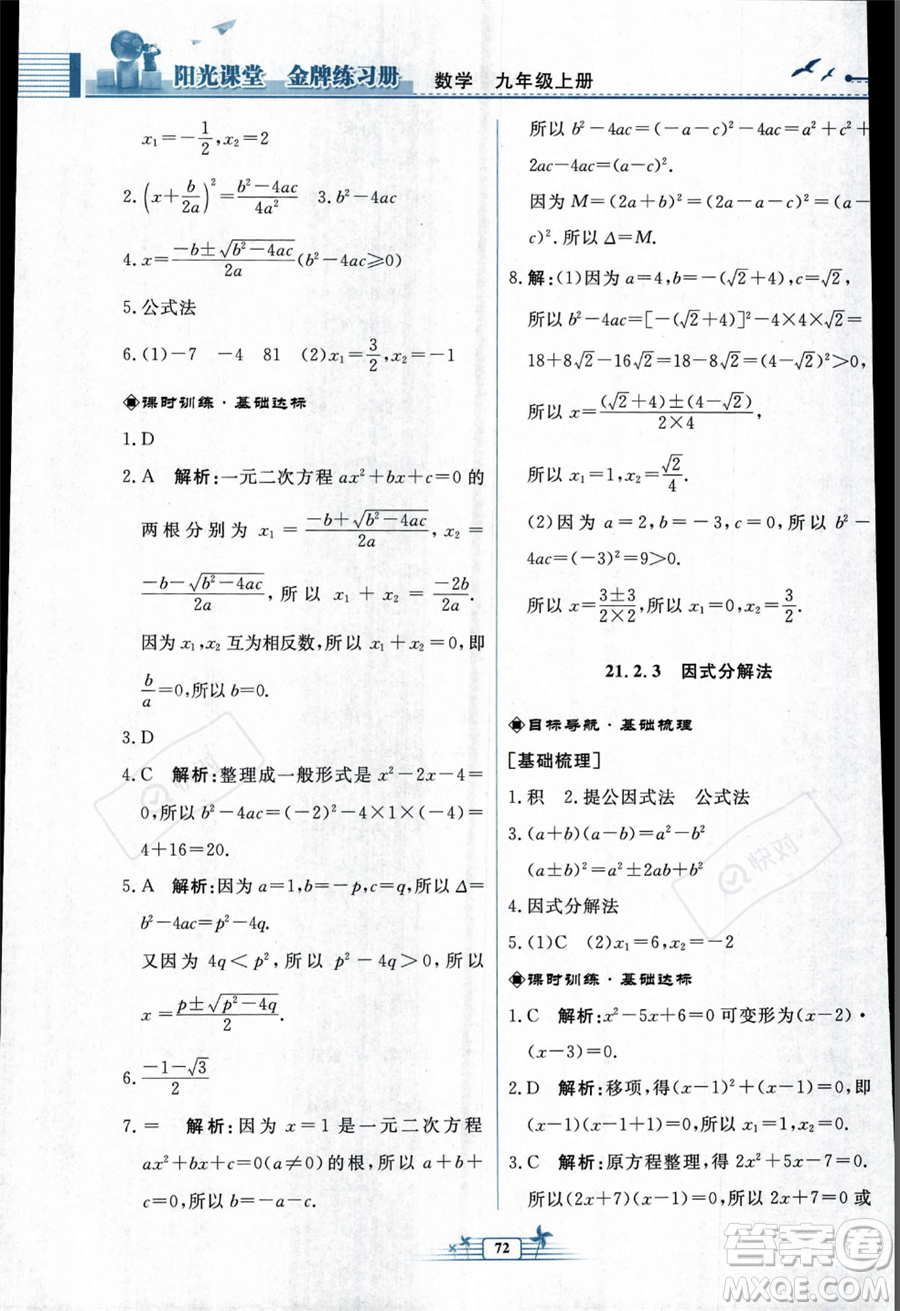 阳光课堂 金牌练习册 数学 九年级上册
x₁=-1/2,x₂=2
2.(x+b/2a)²=(b²-4ac)/4a² 3.b²-4ac
4.x=(-b±√(b²-4ac))/2a(b²-4ac≥0)
5.公式法
6.(1)-7 -4 81 (2)x₁=3/2,x₂=-1
课时训练·基础达标
1.D
2.A 解析:一元二次方程 ax²+bx+c=0 的
两根分别为 x₁=(-b+√(b²-4ac))/2a,x₂=
(-b-√(b²-4ac))/2a,所以 x₁+x₂=-2b/2a.
因为 x₁,x₂ 互为相反数,所以 x₁+x₂=0,即
b/a=0,所以 b=0.
3.D
4.C 解析:整理成一般形式是 x²-2x-4=
0,所以 b²-4ac=(-2)²-4×1×(-4)=
4+16=20.
5.A 解析:因为 a=1,b=-p,c=q,所以 Δ=
b²-4ac=p²-4q.
又因为 4q<p²,所以 p²-4q>0,所以
x=(p±√(p²-4q))/2.
6.(-1-√3)/2
7.= 解析:因为 x=1 是一元二次方程
ax²+bx+c=0(a≠0)的根,所以 a+b+
c=0.所以 b=-a-c.
所以 b²-4ac=(-a-c)²-4ac=a²+c²+
2ac-4ac=(a-c)².
因为 M=(2a+b)²=(2a-a-c)²=(a-
c)².所以 Δ=M.
8.解:(1)因为 a=4,b=-(√2+4),c=√2,
所以 b²-4ac=[-(√2+4)]²-4×4×√2=
18+8√2-16√2=18-8√2=(√2-4)²>0,
所以 x=((√2+4)±(4-√2))/(2×4),
所以 x₁=1,x₂=√2/4.
(2)因为 a=2,b=-3,c=0,所以 b²-
4ac=(-3)²=9>0.
所以 x=(3±3)/(2×2),所以 x₁=0,x₂=3/2.
21.2.3 因式分解法
目标导航·基础梳理
[基础梳理]
1.积 2.提公因式法 公式法
3.(a+b)(a-b)=a²-b²
(a±b)²=a²±2ab+b²
4.因式分解法
5.(1)C (2)x₁=6,x₂=-2
课时训练·基础达标
1.C 解析:x²-5x+6=0 可变形为(x-2)·
(x-3)=0.
2.D 解析:移项,得(x-1)²+(x-1)=0,即
(x-1)(x-1+1)=0,所以 x₁=1,x₂=0.
3.C 解析:原方程整理,得 2x²+5x-7=0.
所以(2x+7)(x-1)=0.所以 2x+7=0 或
72
快对
作业帮
快对
答案圈
MXQE.COM